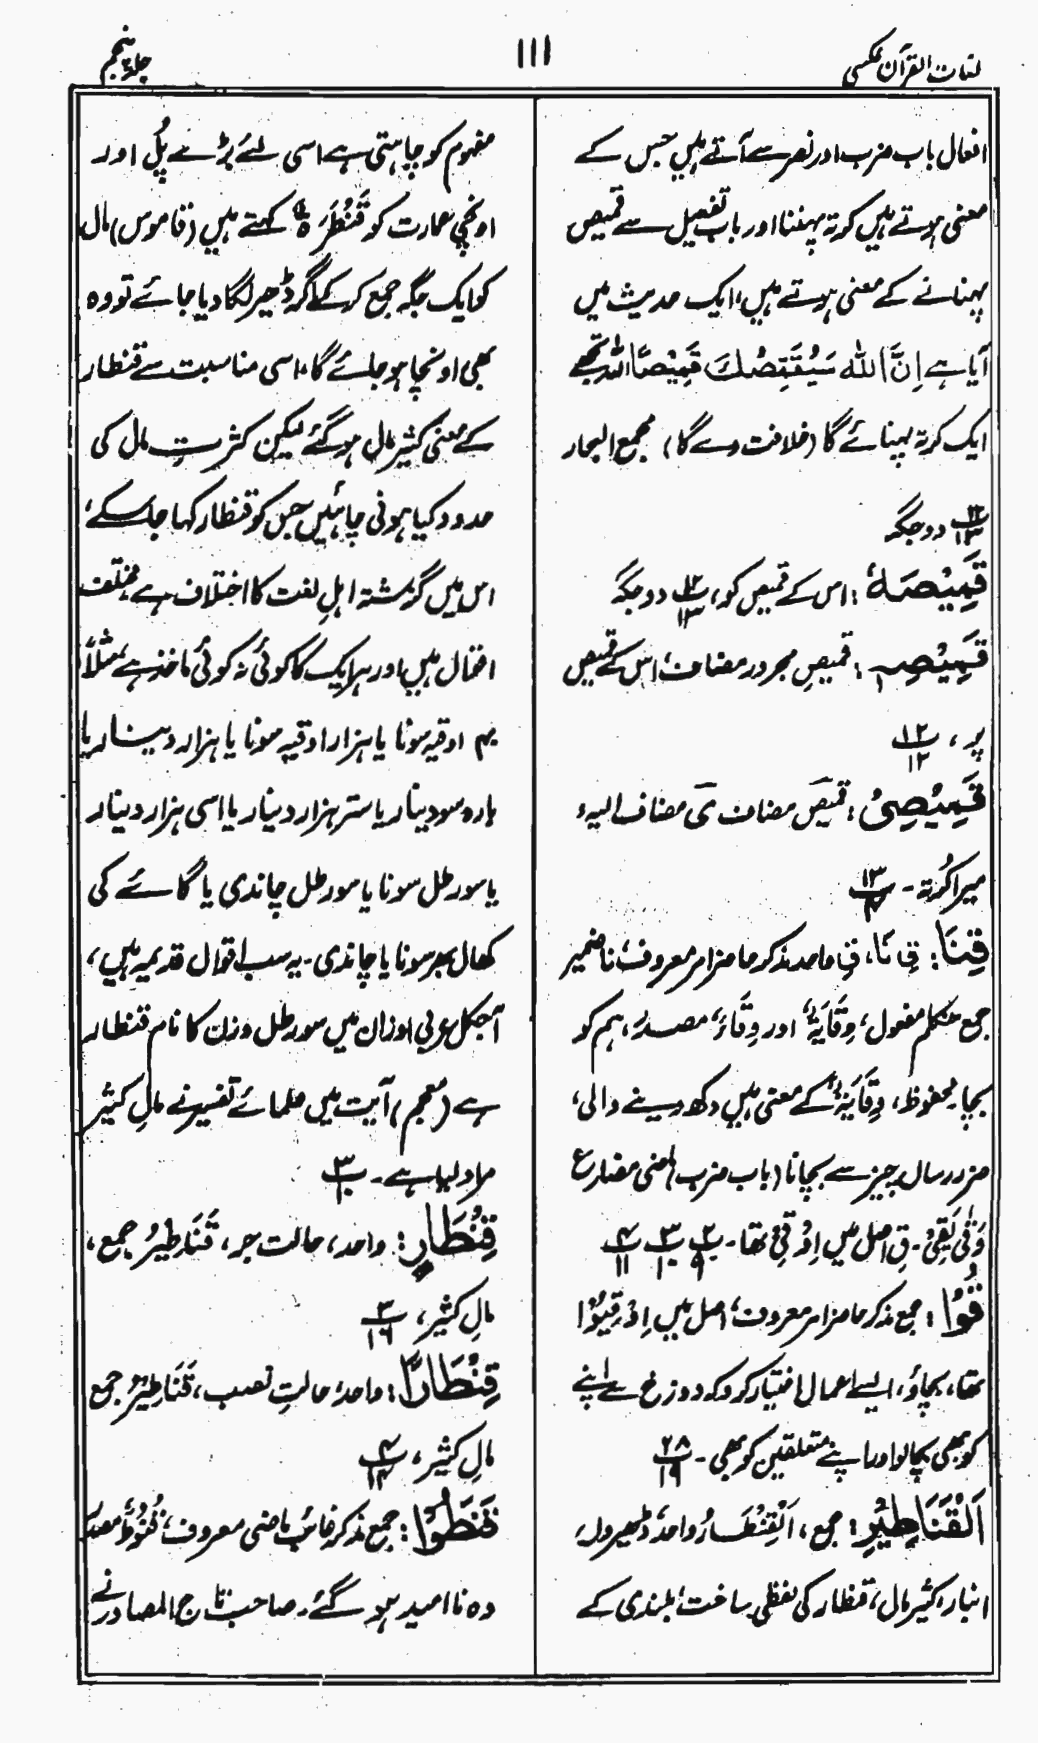 لغات القرآن عکسی
۱۱۱
جلد پنجم
افعال باب ضرب اور نصر سے آتے ہیں جس کے
معنی ہوتے ہیں کُرتہ پہننا اور باب تفعیل سے قمیص
پہنانے کے معنی ہوتے ہیں، ایک حدیث میں
آیا ہے اِنَّ اللہ سَیُقَمِّصُكَ قَمِیْصًا اللہ تجھے
ایک کرتہ پہنائے گا (خلافت دے گا) مجمع البحار
۱۲/۱۳ دو جگہ
قَمِیْصَهٗ : اس کے قمیص کو، ۱۲/۱۳ دو جگہ
قَمِیْصِهٖ : قمیصِ مجرور مضاف، اس کے قمیص
پر، ۱۲/۱۲
قَمِیْصِیْ : قمیصَ مضاف یَ مضاف الیہ،
میرا کُرتہ - ۱۳/۴
قِنَا : قِ نَا، قِ واحد مذکر حاضر امر معروف، نا ضمیر
جمع متکلم مفعول، وِقَایَةٌ اور وِقَاءٌ، مصدر، ہم کو
بچا محفوظ، وِقَایَةٌ کے معنی ہیں دکھ دینے والی،
ضرر رساں چیز سے بچانا (باب ضرب) ماضی مضارع
وَقٰی یَقِیْ - قِ اصل میں اِوْقِیْ تھا - ۲/۹ ۳/۱۰ ۴/۱۱
قُوْا : جمع مذکر حاضر امر معروف، اصل میں اِوْقِیُوْا
تھا، بچاؤ، ایسے اعمال اختیار کرو کہ دوزخ سے اپنے
کو بھی بچالو اور اپنے متعلقین کو بھی - ۲۸/۱۹
اَلْقَنَاطِیْرِ : جمع، اَلْقِنْطَارُ واحد، ڈھیروں،
انبار، کثیر مال، قنطار کی لفظی ساخت، بلندی کے
مفہوم کو چاہتی ہے اسی لئے بڑے پُل اور
اونچی عمارت کو قَنْطَرَةٌ کہتے ہیں (قاموس) مال
کو ایک جگہ جمع کر کے اگر ڈھیر لگا دیا جائے تو وہ
بھی اونچا ہو جائے گا، اسی مناسبت سے قنطار
کے معنی کثیر مال ہو گئے لیکن کثرتِ مال کی
حدود کیا ہونی چاہئیں جس کو قنطار کہا جا سکے،
اس میں گزشتہ اہلِ لغت کا اختلاف ہے، مختلف
اقوال ہیں اور ہر ایک کا کوئی نہ کوئی ماخذ ہے، مثلاً
۴۰ اوقیہ سونا یا ہزار اوقیہ سونا یا ہزار دینار یا
بارہ سو دینار یا ستر ہزار دینار یا اسی ہزار دینار
یا سو رطل سونا یا سو رطل چاندی یا گائے کی
کھال بھر سونا یا چاندی - یہ سب اقوال قدیمہ ہیں،
آجکل عربی اوزان میں سو رطل وزن کا نام قنطار
ہے (معجم) آیت میں علمائے تفسیر نے مالِ کثیر
مراد لیا ہے - ۳/۱۰
قِنْطَارٍ : واحد، حالت جر، قَنَاطِیْرُ جمع،
مالِ کثیر، ۳/۱۶
قِنْطَارًا : واحد، حالتِ نصب، قَنَاطِیْرُ جمع
مالِ کثیر، ۴/۱۴
قَنَطُوْا : جمع مذکر غائب ماضی معروف، قُنُوْطٌ مصدر
وہ نا امید ہو گئے، صاحب تاج المصادر نے